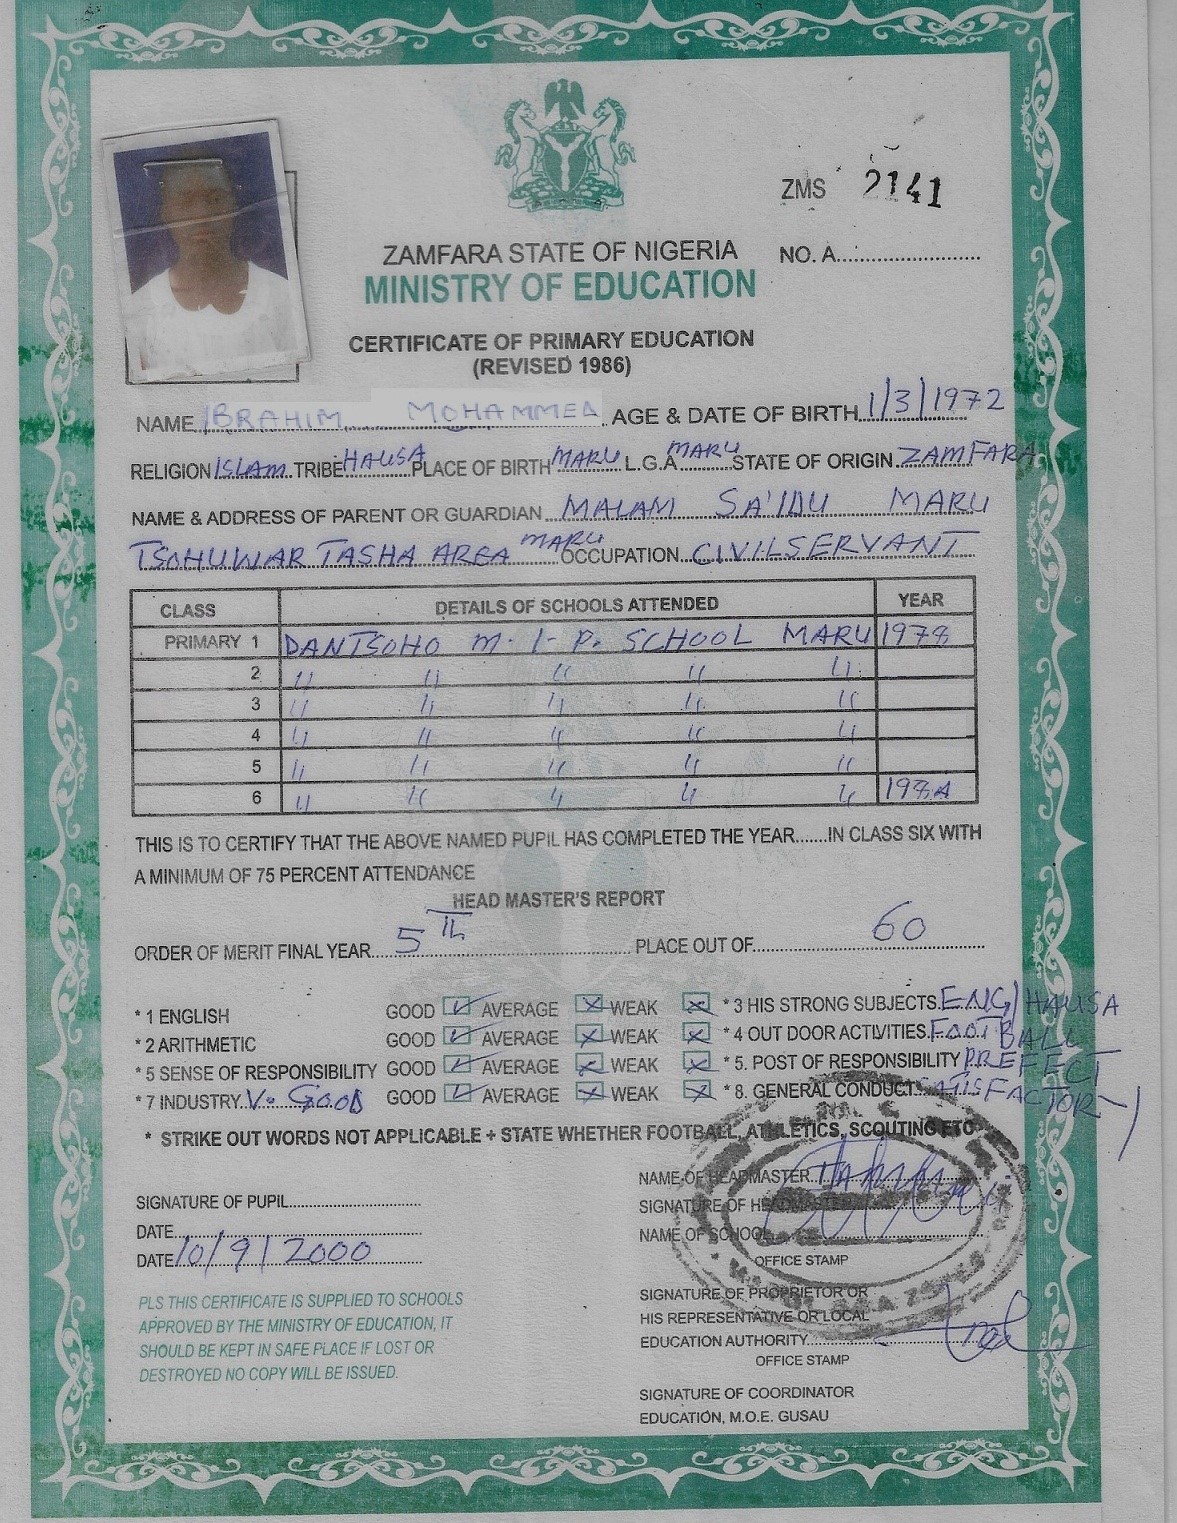 ZMS 2141
NO. A....................
ZAMFARA STATE OF NIGERIA
MINISTRY OF EDUCATION
CERTIFICATE OF PRIMARY EDUCATION
(REVISED 1986)
NAME IBRAHIM MOHAMMED AGE & DATE OF BIRTH 1/3/1972
RELIGION ISLAM TRIBE HAUSA PLACE OF BIRTH MARU L.G.A MARU STATE OF ORIGIN ZAMFARA
NAME & ADDRESS OF PARENT OR GUARDIAN MALAM SA'IDU MARU
TSOHUWAR TASHA AREA MARU OCCUPATION CIVIL SERVANT
CLASS DETAILS OF SCHOOLS ATTENDED YEAR
PRIMARY 1 DANTSOHO M.I.P. SCHOOL MARU
2 " " " " "
3 " " " " "
4 " " " " "
5 " " " " "
6 " " " " "
THIS IS TO CERTIFY THAT THE ABOVE NAMED PUPIL HAS COMPLETED THE YEAR......IN CLASS SIX WITH
A MINIMUM OF 75 PERCENT ATTENDANCE
HEAD MASTER'S REPORT
ORDER OF MERIT FINAL YEAR 5TH PLACE OUT OF 60
* 1 ENGLISH GOOD ✓ AVERAGE X WEAK X * 3 HIS STRONG SUBJECTS ENG/HAUSA
* 2 ARITHMETIC GOOD ✓ AVERAGE X WEAK X * 4 OUT DOOR ACTIVITIES FOOTBALL
* 5 SENSE OF RESPONSIBILITY GOOD ✓ AVERAGE X WEAK X * 5. POST OF RESPONSIBILITY PREFECT
* 7 INDUSTRY V. GOOD GOOD ✓ AVERAGE X WEAK X * 8. GENERAL CONDUCT SATISFACTORY
* STRIKE OUT WORDS NOT APPLICABLE + STATE WHETHER FOOTBALL, ATHLETICS, SCOUTING ETC
SIGNATURE OF PUPIL..............................
DATE..............................
DATE 10/9/2000
PLS THIS CERTIFICATE IS SUPPLIED TO SCHOOLS
APPROVED BY THE MINISTRY OF EDUCATION, IT
SHOULD BE KEPT IN SAFE PLACE IF LOST OR
DESTROYED NO COPY WILL BE ISSUED.
NAME OF HEADMASTER
SIGNATURE OF HEADMASTER
NAME OF SCHOOL
OFFICE STAMP
SIGNATURE OF PROPRIETOR OR
HIS REPRESENTATIVE OR LOCAL
EDUCATION AUTHORITY
OFFICE STAMP
SIGNATURE OF COORDINATOR
EDUCATION, M.O.E. GUSAU